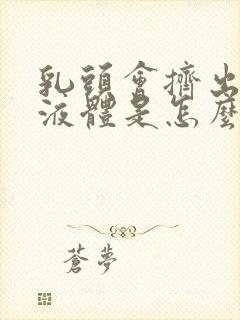 乳頭會擠出
液體是怎麼
蒼夢